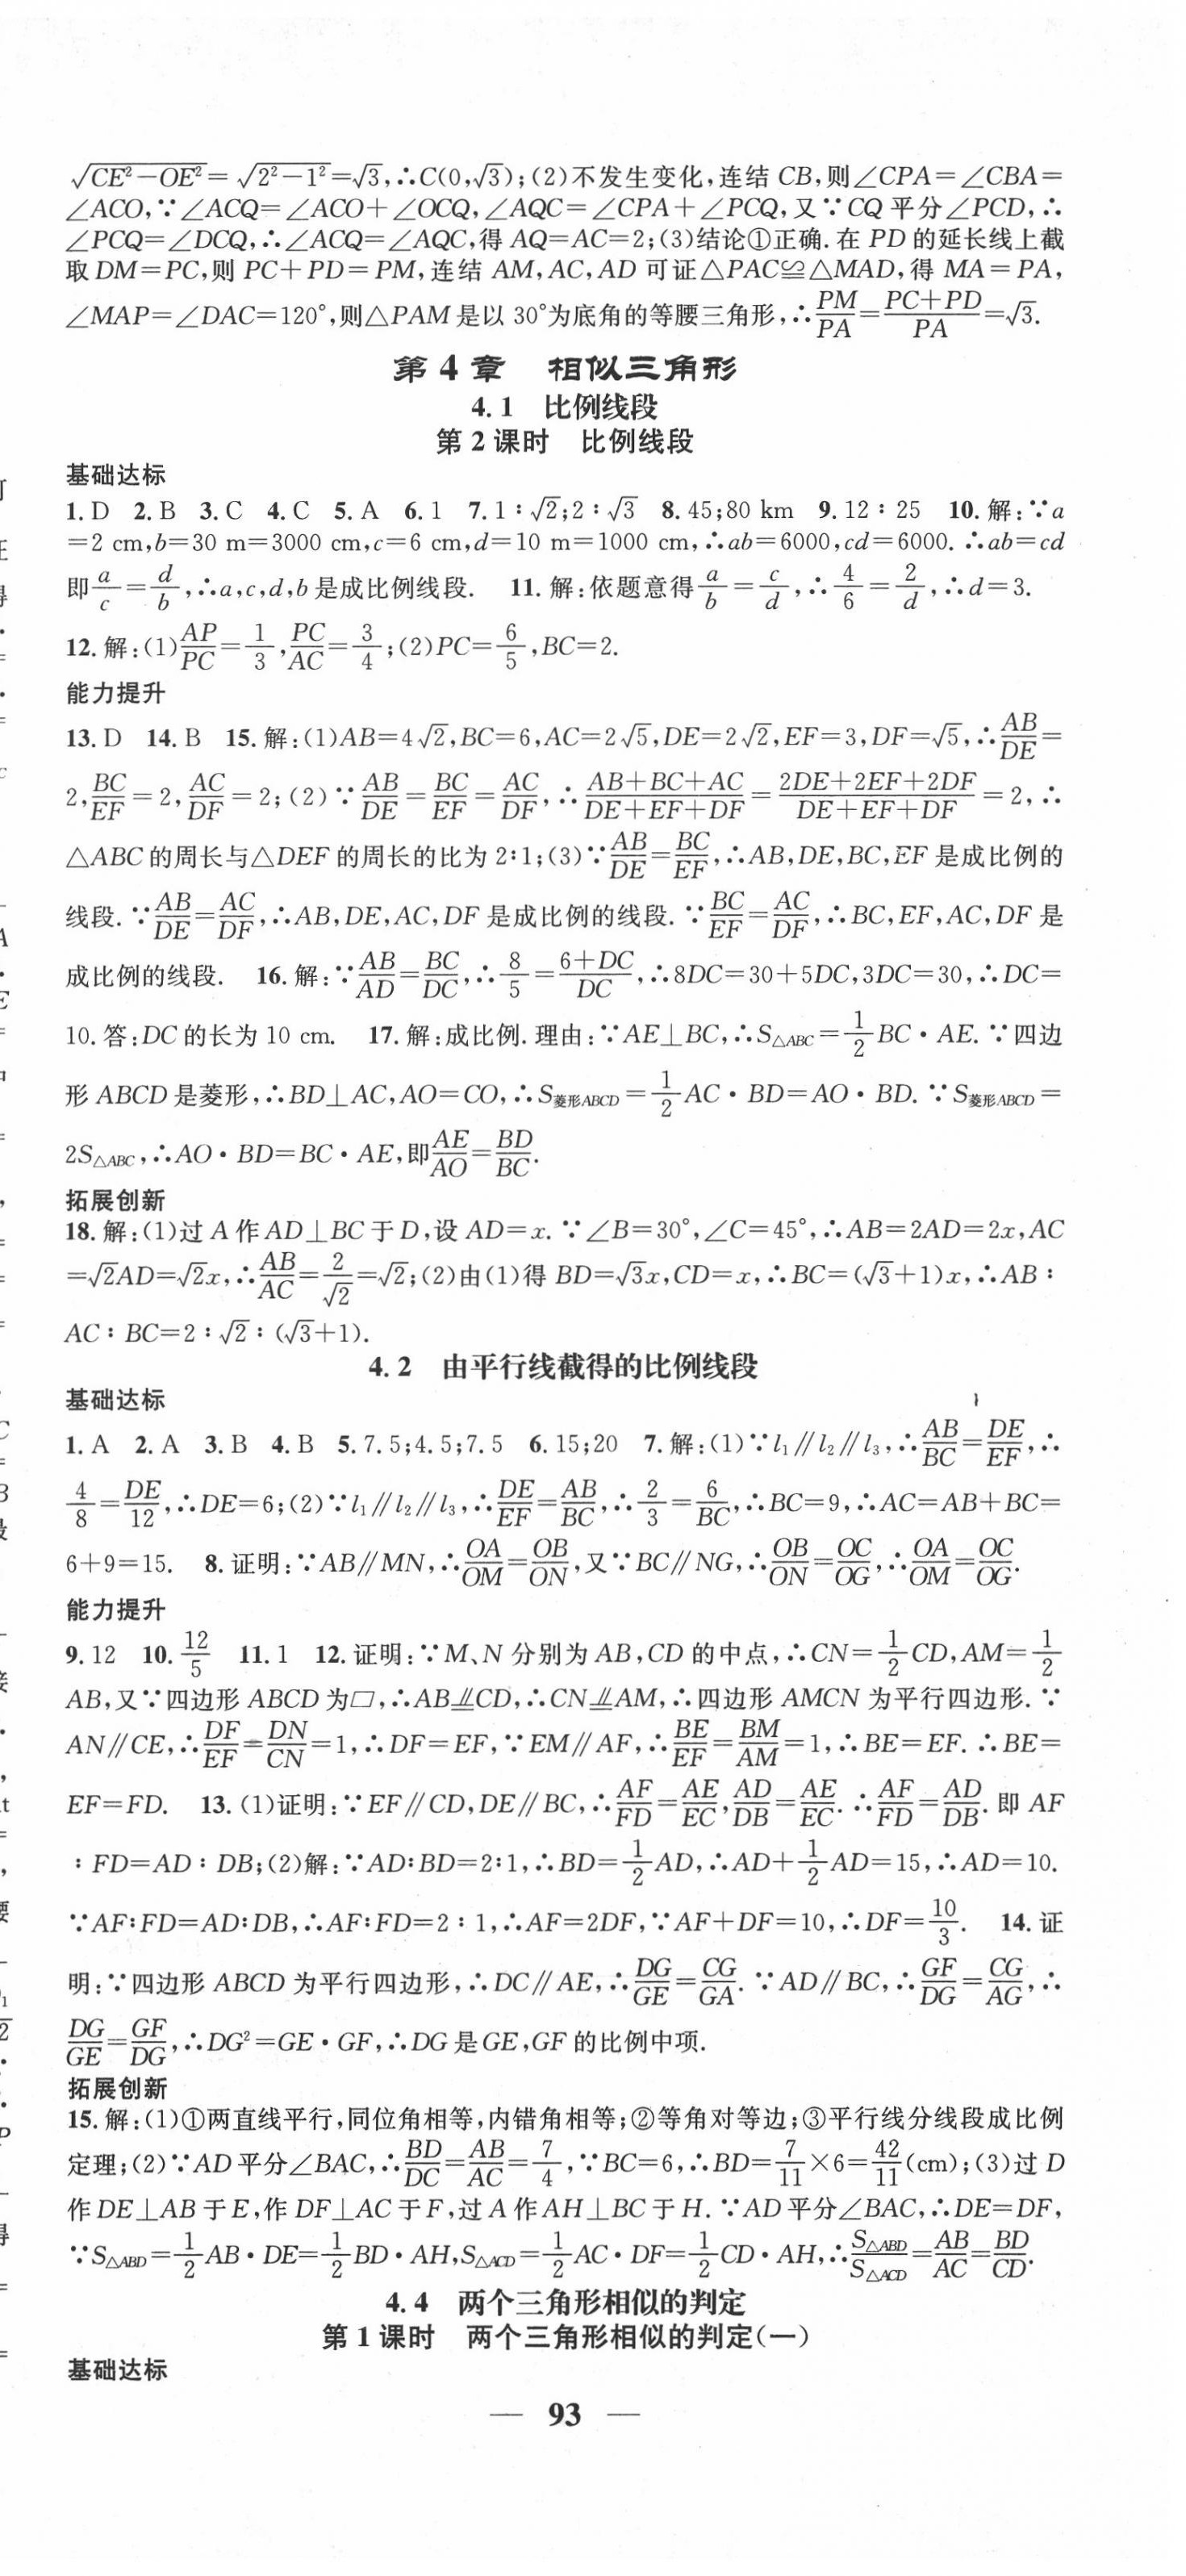 √(CE²−OE²)=√(2²−1²)=√3,∴C(0,√3);(2)不发生变化,连结 CB,则∠CPA=∠CBA=
∠ACO,∵∠ACQ=∠ACO+∠OCQ,∠AQC=∠CPA+∠PCQ,又∵CQ 平分∠PCD,∴
∠PCQ=∠DCQ,∴∠ACQ=∠AQC,得 AQ=AC=2;(3)结论①正确.在 PD 的延长线上截
取 DM=PC,则 PC+PD=PM,连结 AM,AC,AD 可证△PAC≌△MAD,得 MA=PA,
∠MAP=∠DAC=120°,则△PAM 是以 30°为底角的等腰三角形,∴PM/PA=(PC+PD)/PA=√3.
第 4 章 相似三角形
4.1 比例线段
第 2 课时 比例线段
基础达标
1.D 2.B 3.C 4.C 5.A 6.1 7.1∶√2;2∶√3 8.45;80 km 9.12∶25 10.解:∵a
=2 cm,b=30 m=3000 cm,c=6 cm,d=10 m=1000 cm,∴ab=6000,cd=6000.∴ab=cd
即a/c=d/b,∴a,c,d,b 是成比例线段. 11.解:依题意得a/b=c/d,∴4/6=2/d,∴d=3.
12.解:(1)AP/PC=1/3,PC/AC=3/4;(2)PC=6/5,BC=2.
能力提升
13.D 14.B 15.解:(1)AB=4√2,BC=6,AC=2√5,DE=2√2,EF=3,DF=√5,∴AB/DE=
2,BC/EF=2,AC/DF=2;(2)∵AB/DE=BC/EF=AC/DF,∴(AB+BC+AC)/(DE+EF+DF)=(2DE+2EF+2DF)/(DE+EF+DF)=2,∴
△ABC 的周长与△DEF 的周长的比为 2∶1;(3)∵AB/DE=BC/EF,∴AB,DE,BC,EF 是成比例的
线段.∵AB/DE=AC/DF,∴AB,DE,AC,DF 是成比例的线段.∵BC/EF=AC/DF,∴BC,EF,AC,DF 是
成比例的线段. 16.解:∵AB/AD=BC/DC,∴8/5=(6+DC)/DC,∴8DC=30+5DC,3DC=30,∴DC=
10.答:DC 的长为 10 cm. 17.解:成比例.理由:∵AE⊥BC,∴S△ABC=1/2BC·AE.∵四边
形 ABCD 是菱形,∴BD⊥AC,AO=CO,∴S菱形ABCD=1/2AC·BD=AO·BD.∵S菱形ABCD=
2S△ABC,∴AO·BD=BC·AE,即AE/AO=BD/BC.
拓展创新
18.解:(1)过 A 作 AD⊥BC 于 D,设 AD=x.∵∠B=30°,∠C=45°,∴AB=2AD=2x,AC
=√2AD=√2x,∴AB/AC=2/√2=√2;(2)由(1)得 BD=√3x,CD=x,∴BC=(√3+1)x,∴AB∶
AC∶BC=2∶√2∶(√3+1).
4.2 由平行线截得的比例线段
基础达标
1.A 2.A 3.B 4.B 5.7.5;4.5;7.5 6.15;20 7.解:(1)∵l₁∥l₂∥l₃,∴AB/BC=DE/EF,∴
4/8=DE/12,∴DE=6;(2)∵l₁∥l₂∥l₃,∴DE/EF=AB/BC,∴2/3=6/BC,∴BC=9,∴AC=AB+BC=
6+9=15. 8.证明:∵AB∥MN,∴OA/OM=OB/ON,又∵BC∥NG,∴OB/ON=OC/OG,∴OA/OM=OC/OG.
能力提升
9.12 10.12/5 11.1 12.证明:∵M、N 分别为 AB,CD 的中点,∴CN=1/2CD,AM=1/2
AB,又∵四边形 ABCD 为▱,∴AB⫽CD,∴CN⫽AM,∴四边形 AMCN 为平行四边形.∵
AN∥CE,∴DF/EF=DN/CN=1,∴DF=EF,∵EM∥AF,∴BE/EF=BM/AM=1,∴BE=EF.∴BE=
EF=FD. 13.(1)证明:∵EF∥CD,DE∥BC,∴AF/FD=AE/EC,AD/DB=AE/EC.∴AF/FD=AD/DB.即 AF
∶FD=AD∶DB;(2)解:∵AD∶BD=2∶1,∴BD=1/2AD,∴AD+1/2AD=15,∴AD=10.
∵AF∶FD=AD∶DB,∴AF∶FD=2∶1,∴AF=2DF,∵AF+DF=10,∴DF=10/3. 14.证
明:∵四边形 ABCD 为平行四边形,∴DC∥AE,∴DG/GE=CG/GA.∵AD∥BC,∴GF/DG=CG/AG,∴
DG/GE=GF/DG,∴DG²=GE·GF,∴DG 是 GE,GF 的比例中项.
拓展创新
15.解:(1)①两直线平行,同位角相等,内错角相等;②等角对等边;③平行线分线段成比例
定理;(2)∵AD 平分∠BAC,∴BD/DC=AB/AC=7/4,∵BC=6,∴BD=7/11×6=42/11(cm);(3)过 D
作 DE⊥AB 于 E,作 DF⊥AC 于 F,过 A 作 AH⊥BC 于 H.∵AD 平分∠BAC,∴DE=DF,
∵S△ABD=1/2AB·DE=1/2BD·AH,S△ACD=1/2AC·DF=1/2CD·AH,∴S△ABD/S△ACD=AB/AC=BD/CD.
4.4 两个三角形相似的判定
第 1 课时 两个三角形相似的判定(一)
基础达标
— 93 —